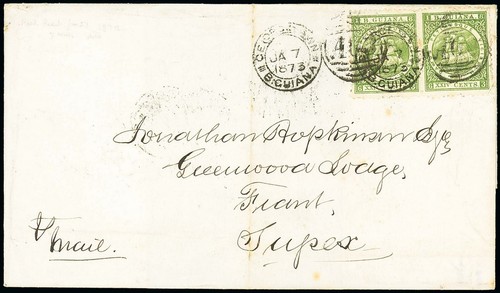 B. GUIANA B. GUIANA
JA 7
1873
B. GUIANA
1873
B. GUIANA
XXIV CENTS
XXIV CENTS
Jonathan Hopkinson Esq
Greenwood Lodge,
Frant,
Sussex
Mail.